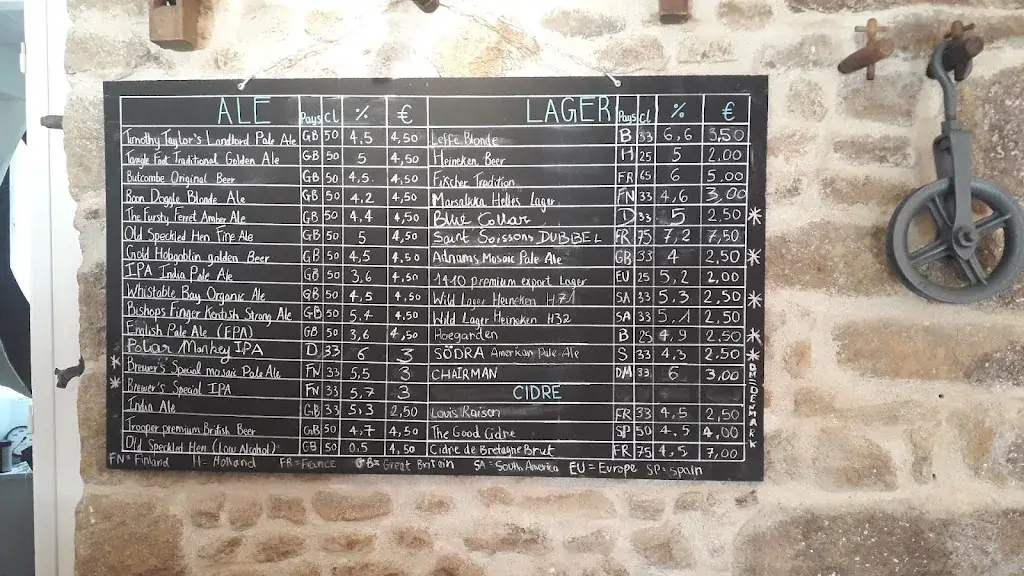 ALE Pays Cl % €
Timothy Taylor's Landlord Pale Ale GB 50 4,5 4,50
Tangle Foot Traditional Golden Ale GB 50 5 4,50
Butcombe Original Beer GB 50 4,5 4,50
Boon Doggle Blonde Ale GB 50 4,2 4,50
The Fursty Ferret Amber Ale GB 50 4,4 4,50
Old Speckled Hen Fine Ale GB 50 5 4,50
Gold Hobgoblin golden Beer GB 50 4,5 4,50
IPA India Pale Ale GB 50 3,6 4,50
Whistable Bay Organic Ale GB 50 4,5 4,50
Bishops Finger Kentish Strong Ale GB 50 5,4 4,50
English Pale Ale (EPA) GB 50 3,6 4,50
Polar Monkey IPA D 33 6 3
* Brewer's Special mosaic Pale Ale FN 33 5,5 3
* Brewer's Special IPA FN 33 5,7 3
India Ale GB 33 5,3 2,50
Trooper premium British Beer GB 50 4,7 4,50
Old Speckled Hen (Low Alcohol) GB 50 0,5 4,50
LAGER Pays Cl % €
Leffe Blonde B 33 6,6 3,50
Heineken Beer H 25 5 2,00
Fischer Tradition FR 65 6 5,00
Marsalkka Helles Lager FN 33 4,6 3,00
Blue Collar D 33 5 2,50 *
Saint Soissons DUBBEL FR 75 7,2 7,50
Adnams Mosaic Pale Ale GB 33 4 2,50 *
1410 premium export Lager EU 25 5,2 2,00
Wild Lager Heineken H71 SA 33 5.3 2,50 *
Wild Lager Heineken H32 SA 33 5.1 2,50
Hoegarden B 25 4,9 2,50 *
SÖDRA American Pale Ale S 33 4,3 2.50 *
CHAIRMAN DM 33 6 3,00 *
CIDRE
Louis Raison FR 33 4,5 2,50
The Good Cidre SP 50 4.5 4,00
Cidre de Bretagne Brut FR 75 4,5 7,00
FN = Finland H = Holland FR = France GB = Great Britain SA = South America EU = Europe SP = Spain